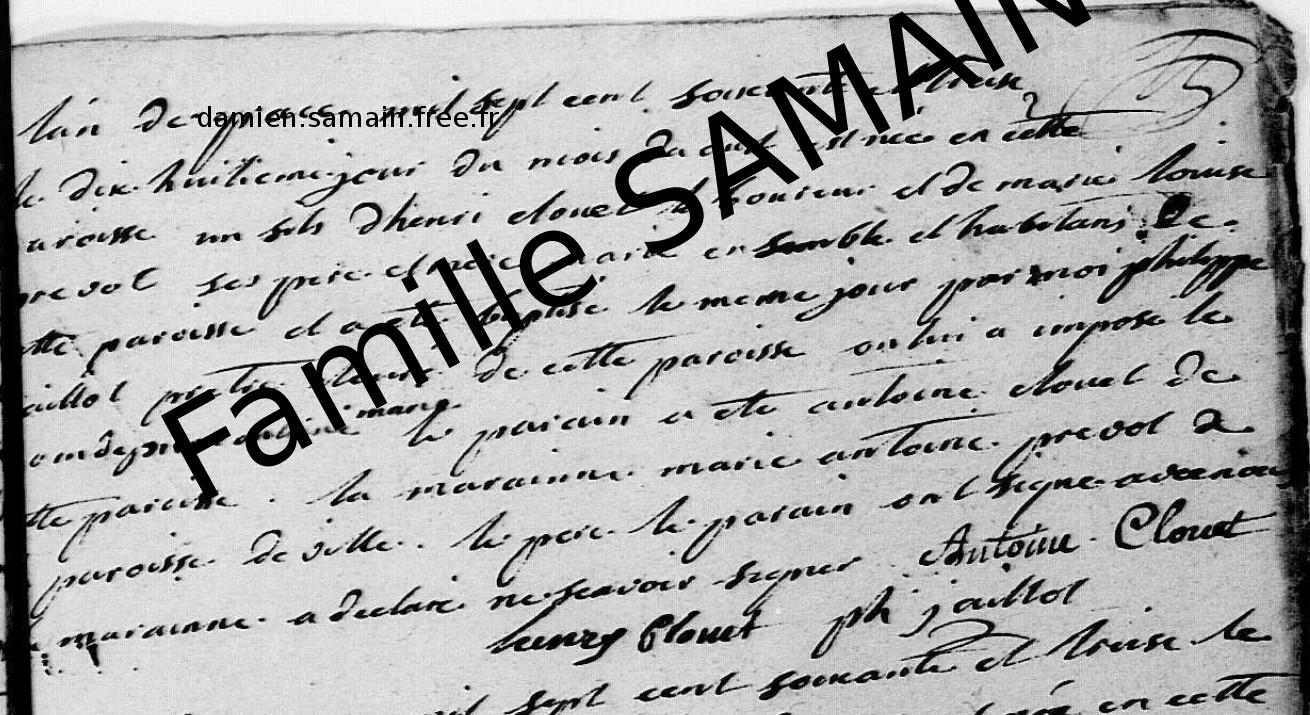 lan de grace mil sept cent soixante et treise
le dix huitieme jour du mois daout est neé en cette
paroisse un fils dhenri clouet laboureur et de marie louise
prevot ses pere et mere marié ensemble et habitans de
cette paroisse et a eté baptisé le meme jour par moi philippe
jaillot pretre de cette paroisse on lui a imposé le
nom de antoine marie le parain a eté antoine clouet de
cette paroisse . la marainne marie antoine prevot de
paroisse de ville . le pere le parain ont signe avec nous
marainne a declaré ne scavoir signer Antoine Clouet
henry Clouet ph jaillot
sept cent soixante et treise le
en cette
damien.samain.free.fr
Famille SAMAIN